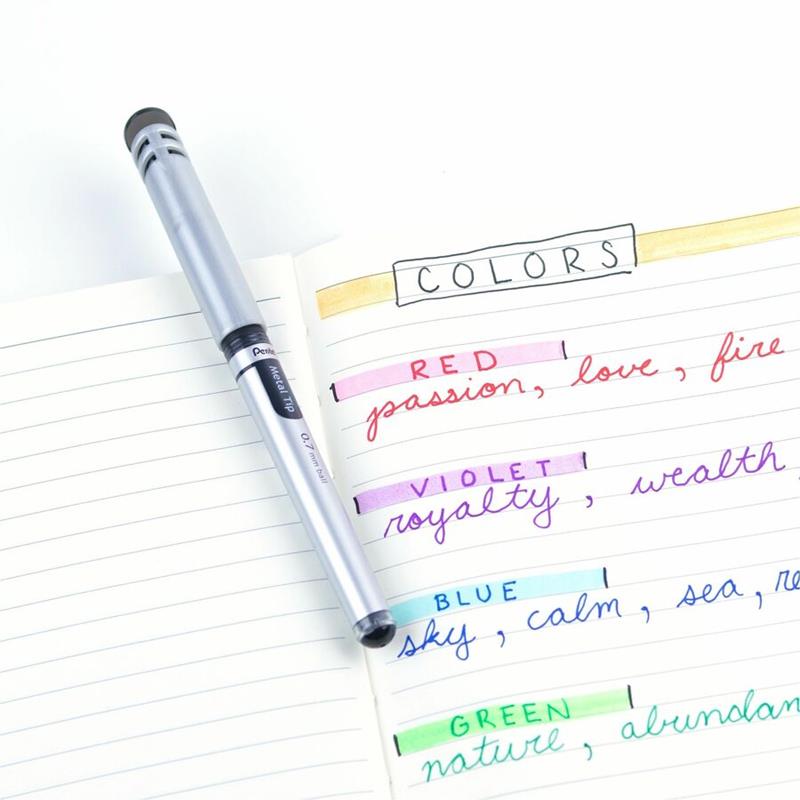 COLORS
RED
passion, love, fire
VIOLET
royalty, wealth,
BLUE
sky, calm, sea, re
GREEN
nature, abundan
Pentel
Metal Tip
0.7 mm ball